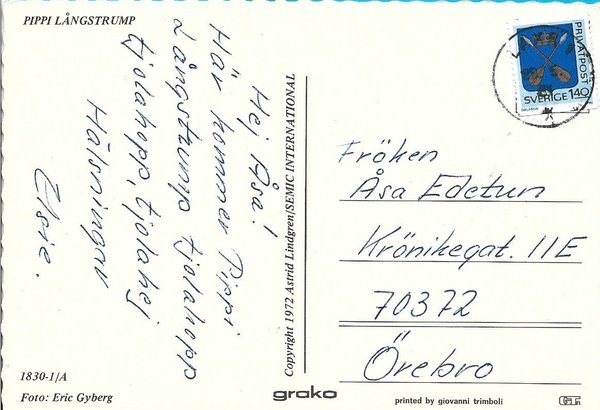 PIPPI LÅNGSTRUMP
Hej Åsa!
Här kommer Pippi
Långstrump tjolahopp
tjolahopp, tjolahej
Hälsningar
Elsie.
1830-1/A
Foto: Eric Gyberg
Copyright 1972 Astrid Lindgren/SEMIC INTERNATIONAL
grako
PRIVATPOST
SVERIGE 140
Fröken
Åsa Edetun
Krönikegat. 11E
70372
Örebro
printed by giovanni trimboli